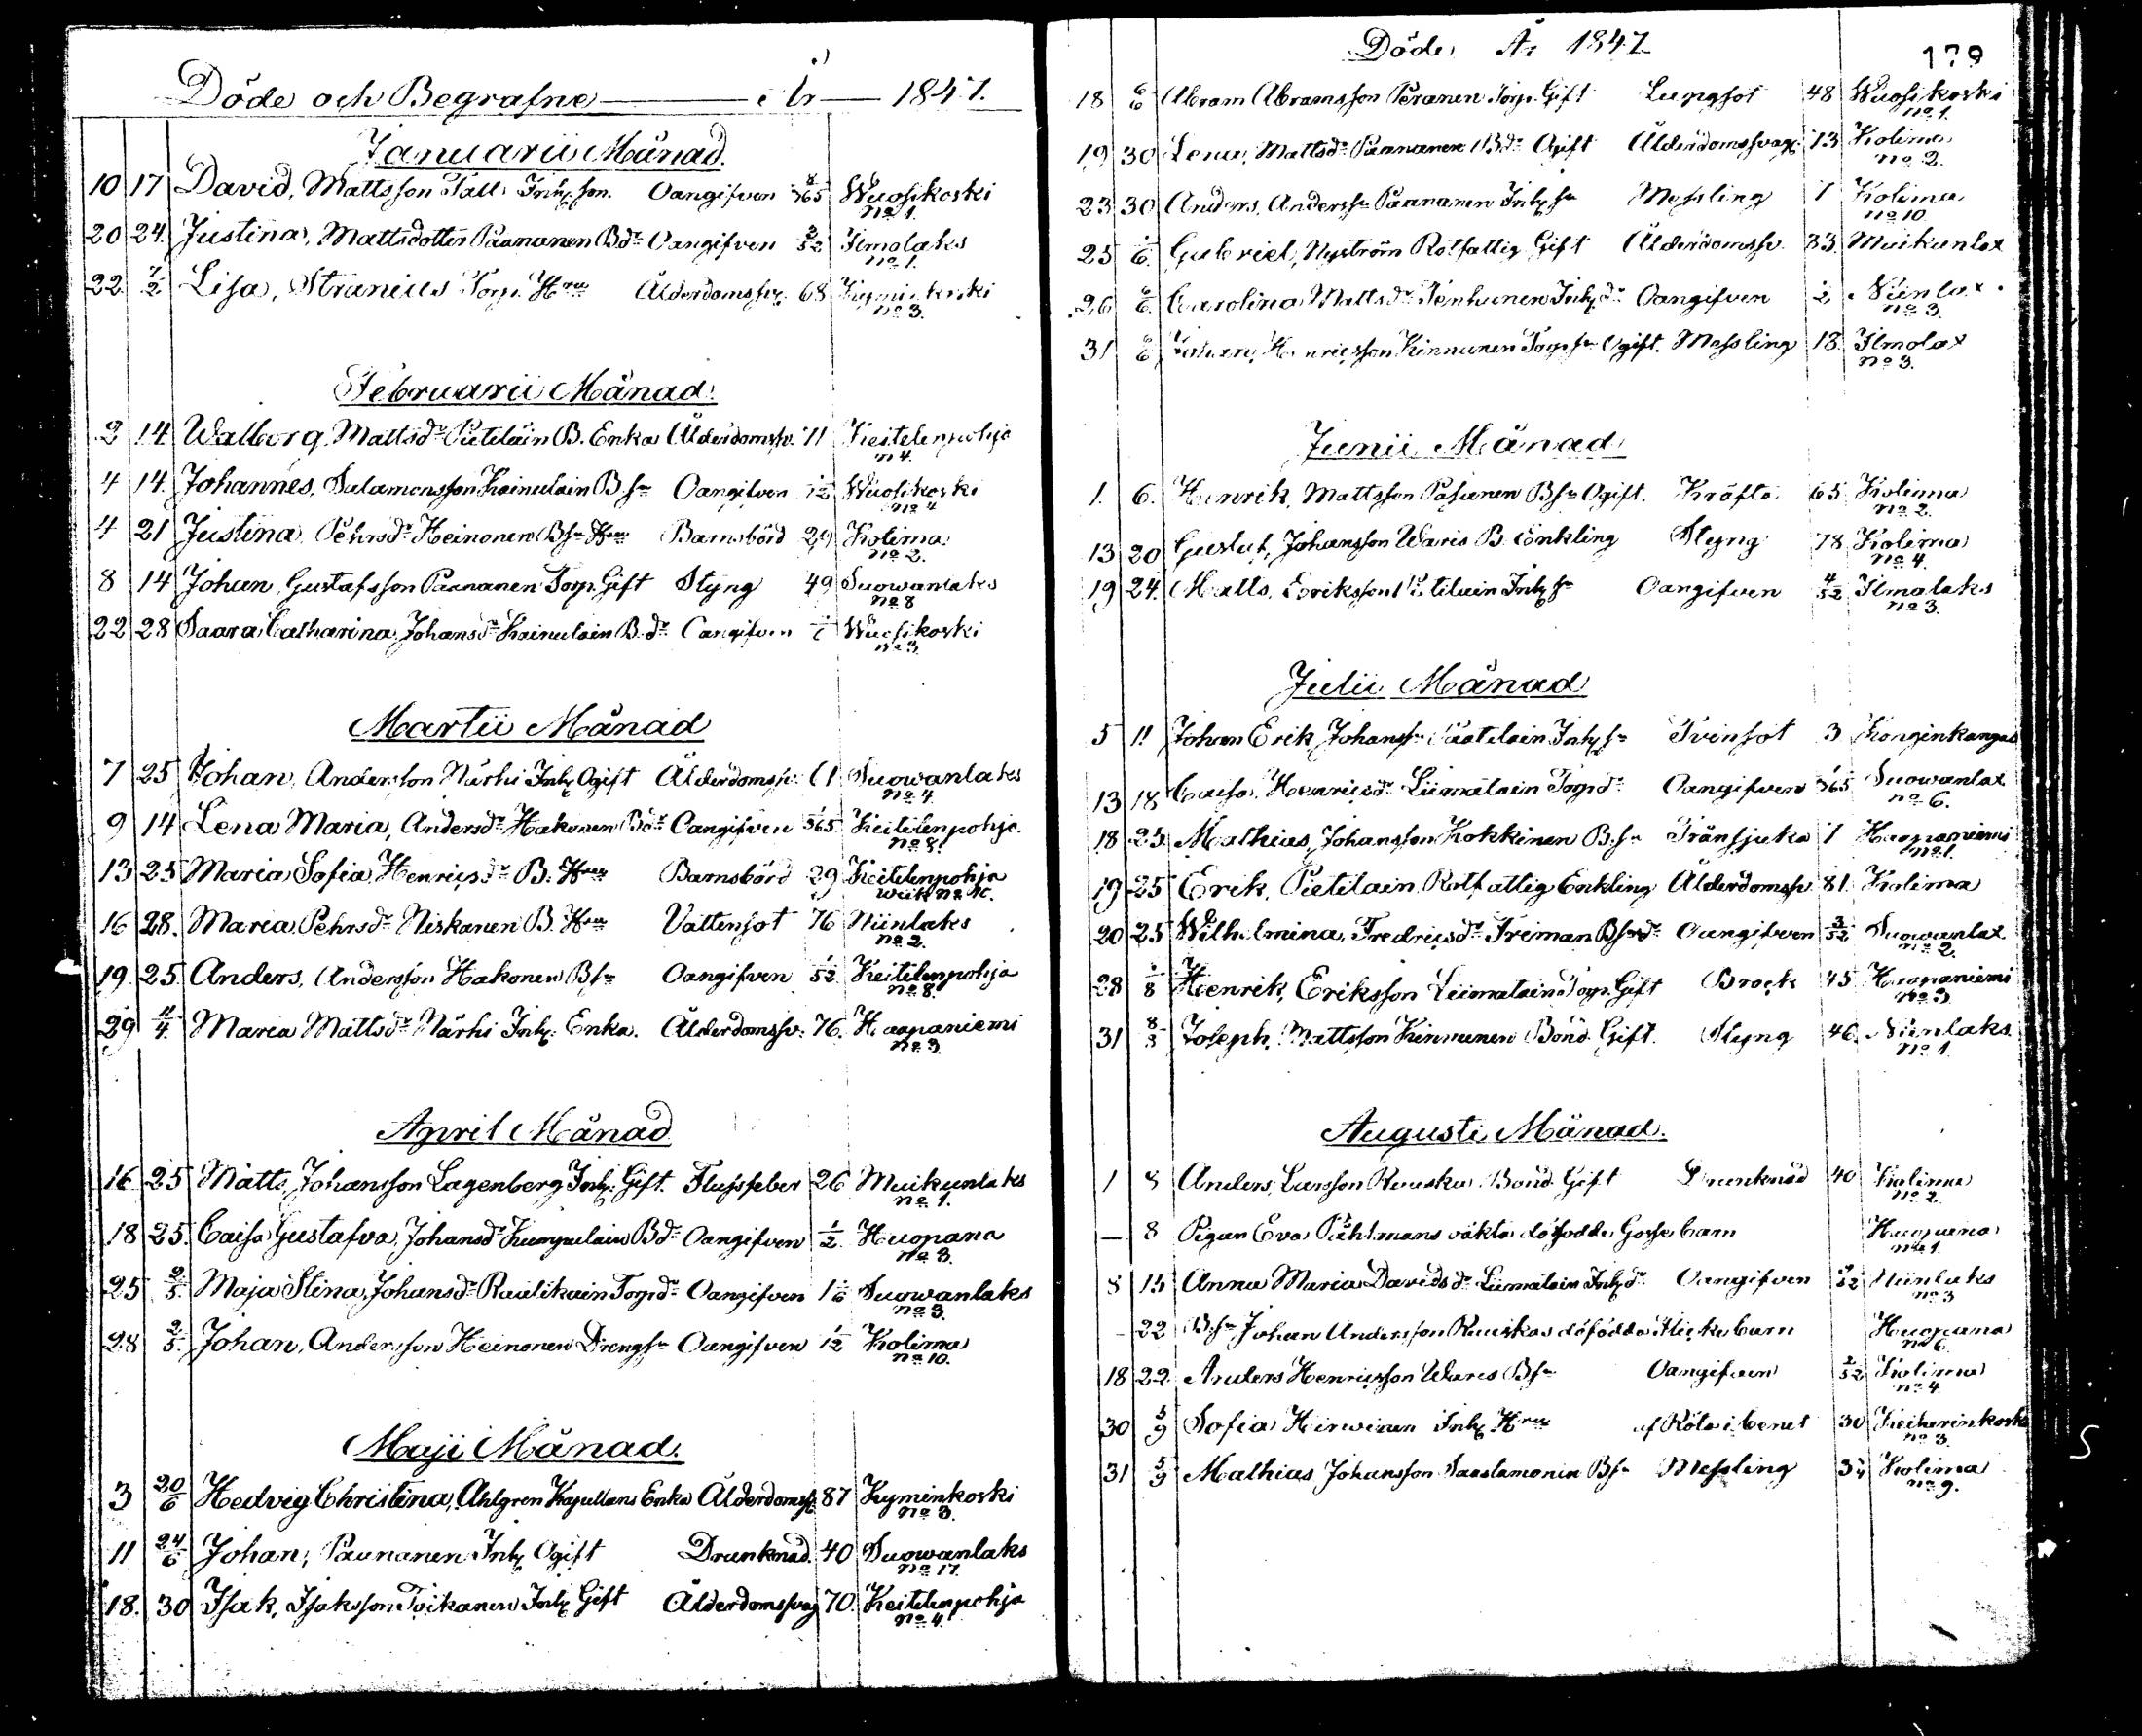 Döde och Begrafne År 1847.
Januarii Månad.
10 17 David, Mattsson Tall Inh. son. Oangifven 8/365 Wuosikoski
no 1.
20 24. Justina, Mattsdotter Paananen Bdr Oangifven 2/52 Ilmolaks
no 1.
22. 7/2 Lisa, Stranius Torp. Hru Ålderdomssv. 68 Kyminkoski
no 3.
Februarii Månad.
2 14 Walborg Mattsdr Pietiläin B. Enka Ålderdomssv. 71 Keitelenpohja
n 4.
4 14. Johannes, Salamonsson Kainulain B sn Oangifven 1/12 Wuosikoski
no 4
4 21 Justina Pehrsdr Heinonen Bsn Hru Barnsbörd 29 Kolima
no 2.
8 14 Johan Gustafsson Paananen Torp. Gift Styng 49 Suowanlaks
no 8
22 28 Saara Catharina Johansdr Kainulain B. dr Oangifven Wuosikoski
no 3.
Martii Månad
7 25 Johan, Andersson Närhi Inh. Ogift Ålderdomssv. 61 Suowanlaks
no 4.
9 14 Lena Maria, Andersdr Hakonen Bdr Oangifven 1/365 Keitelenpohja.
no 8.
13 25 Maria Sofia Henricsdr B. Hru Barnsbörd 29 Keitelenpohja
no 10.
16 28. Maria Pehrsdr Niskanen B. Hru Vattensot 76 Niinlaks
no 2.
19. 25. Anders, Andersson Hakonen Bsn Oangifven 1/52 Keitelenpohja
no 8.
29 11/4. Maria Mattsdr Närhi Inh. Enka. Ålderdomssv. 76. Haapaniemi
no 3.
April Månad
16 25 Matts Johansson Lagenberg Inh. Gift. Flussfeber 26 Muikunlaks
no 1.
18 25. Caisa Gustafva, Johansdr Kumpulain Bdr Oangifven 1/2. Huopana
no 3.
25 2/5. Maja Stina, Johansdr Raulikain Torpdr Oangifven 1 Suowanlaks
no 3.
28 2/5. Johan, Andersson Heinonen Drengsn Oangifven 1/12 Kolima
no 10.
Maji Månad.
3 20/6 Hedvig Christina, Ahlgren Kapellans Enka Ålderdomssv. 87 Kyminkoski
no 3.
11 24/6 Johan, Paananen Inh. Ogift Drunknad. 40 Suowanlaks
no 17.
18. 30 Isak, Isaksson Toikanen Inh. Gift Ålderdomssvag 70. Keitelenpohja
no 4.
Döde År 1847
179
18 6/6 Abram Abramsson Peranen Torp. Gift Lungsot 48 Wuosikoski
no 1.
19 30 Lena, Mattsdr Paananen Bdr Ogift Ålderdomssvag 73 Kolima
no 2.
23 30 Anders, Anderssn Paananen Inh. sn Messling 7 Kolima
no 10
25 Gabriel, Nyström Rotfattig Gift Ålderdomssv. 83. Muikunlax
26 Carolina Mattsdr Tenhunen Inh. dr Oangifven 1/2 Niinlax.
no 3.
31 Johan, Henricsson Kinnunen Torp. sn Ogift. Messling 18. Ilmolax
no 3.
Junii Månad
1. 6. Henrik, Mattsson Pasanen Bsn Ogift. Kräfta 65 Kolima
no 2.
13 20 Gustaf, Johansson Waris B. Enkling Styng 78 Kolima
no 4.
19 24. Matts, Eriksson Pietiläin Inh. sn Oangifven 4/52 Ilmolaks
no 3.
Julii Månad
5 11 Johan Erik Johanssn Pietiläin Inh. sn Tvinsot 3 Konginkangas
13 18 Caisa Henricsdr Liimatain Torpdr Oangifven 1/365 Suowanlax
no 6.
18 25 Mathias, Johansson Kokkinen B. sn Tränsjuka 7 Haapaniemi
no 1.
19 25 Erik, Pietiläin Rotfattig Enkling Ålderdomssv 81. Kolima
20 25 Wilhelmina, Fredricsdr Friman Bsndr Oangifven 3/52 Suowanlax
no 2.
28 1/8 Henrik, Eriksson Liimatain Torp. Gift Brock 45 Haapaniemi
no 3.
31 8/8 Joseph, Mattsson Kinnunen Bond. Gift. Styng 46. Niinlaks.
no 1.
Augusti Månad.
1 8 Anders, Larsson Ruuska Bond. Gift Drunknad 40 Kolima
no 2.
— 8 Pigan Eva Pehlmans oäkta dödfödda Gosse barn Huopana
no 1.
8 15 Anna Maria Davidsdr Liimatain Inh. dr Oangifven Niinlaks
no 3
– 22 Bsn Johan Andersson Ruuskas dödfödda Flicke barn Huopana
no 6.
18 22. Anders Henricsson Wares Bsn Oangifven 2/52 Kolima
no 4.
30 5/9 Sofia Hirwinen Inh. Hru af Röta i benet 30 Keiherinkoski
no 3.
31 5/9 Mathias Johansson Saastamonin Bsn Messling Kolima
no 9.